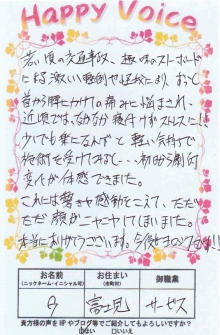 Happy Voice
若い頃の交通事故、趣味のスノーボード
による激しい転倒や逆転により、
首から腰にかけての痛みに悩まされ、
近頃では、なかなか寝付けずストレスに!!
少しでも楽になるんだと軽い気持ちで
施術を受けてみると… 初回から劇的
変化が体感できました。
これには驚きや感動をこえて、ただ
ただ顔がニヤニヤしてしまいました。
本当にありがとうございます。今後もヨロシクです!!
お名前
(ニックネーム・イニシャル可)
お住まい
(市町村)
御職業
富士見
サービス
貴方様の声をHPやブログ等でご紹介してもよろしいですか?
はい
□いいえ